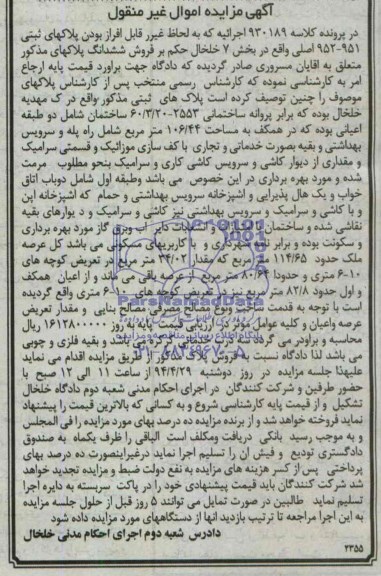 آگهی مزایده اموال غیر منقول
در پرونده کلاسه ۹۳۰۱۸۹ اجرائیه که به لحاظ غیر قابل افراز بودن پلاکهای ثبتی
۹۵۲-۹۵۱ اصلی واقع در بخش ۷ خلخال حکم بر فروش ششدانگ پلاکهای مذکور
متعلق به آقایان مسروری صادر گردیده که دادگاه جهت برآورد قیمت پایه ارجاع
امر به کارشناسی نموده که کارشناس رسمی منتخب پس از کارشناس پلاکهای
موصوف را چنین توصیف کرده است پلاک های ثبتی مذکور واقع در ک مهدیه
خلخال بوده که برابر پروانه ساختمانی ۲۵۵۳-۶۰/۳/۲۰ ساختمان شامل دو طبقه
اعیانی بوده که در همکف به مساحت ۱۰۶/۴۴ متر مربع شامل راه پله و سرویس
بهداشتی و بقیه بصورت خدماتی و تجاری با کف سازی موزائیک و قسمتی سرامیک
و مقداری از دیوار کاشی و سرویس کاشی کاری و سرامیک بنحو مطلوب مرمت
شده و مورد بهره برداری در این خصوص می باشد وطبقه اول شامل دوباب اتاق
خواب و یک هال پذیرایی و آشپزخانه سرویس بهداشتی و حمام که آشپزخانه اپن
و با کاشی و سرامیک و سرویس بهداشتی نیز کاشی و سرامیک و دیوارهای بقیه
نقاشی شده و ساختمان دارای انشعابات دایر آب وبرق گاز مورد بهره برداری
و سکونت بوده و برابر و با کاربریهای می باشد کل عرصه
ملک حدود ۱۱۴/۶۵ متر مربع که مقدار ۳۴/۰۲ متر مربع در تعریض کوچه های
۶-۱۰ متری و حدودا ۸۰/۶۳ متر مربع از عرصه باقی می ماند و از اعیان همکف
و اول حدود ۸۲/۸ متر مربع نیز در تعریض کوچه های ۶-۱۰ متری واقع گردیده
است با توجه به قدمت ساخت ونوع مصالح مصرفی مصالح بنایی و مقدار تعریض
عرصه واعیان و کلیه عوامل موثر در ارزیابی قیمت پایه به روز ۱۶۱۲۸۰۰۰۰۰ ریال
محاسبه و برآورد می گردد و بقیه فلزی و چوبی
می باشد لذا دادگاه نسبت به فروش پلاک مذکور از طریق مزایده اقدام می نماید
علیهذا جلسه مزایده در روز دوشنبه ۹۴/۴/۲۹ از ساعت ۱۱ الی ۱۲ صبح با
حضور طرفین و شرکت کنندگان در اجرای احکام مدنی شعبه دوم دادگاه خلخال
تشکیل و از قیمت پایه کارشناسی شروع و به کسانی که بالاترین قیمت را پیشنهاد
نماید فروخته خواهد شد و از برنده مزایده ده درصد بهای مورد مزایده را فی المجلس
و به موجب رسید بانکی دریافت ومکلف است الباقی را ظرف یکماه به صندوق
دادگستری تودیع و فیش آن را تسلیم اجرا نماید درغیراینصورت ده درصد بهای
پرداختی پس از کسر هزینه های مزایده به نفع دولت ضبط و مزایده تجدید خواهد
شد شرکت کنندگان باید قیمت پیشنهادی خود را در پاکت سربسته به دایره اجرا
تسلیم نماید طالبین در صورت تمایل می توانند ۵ روز قبل از حلول جلسه مزایده
به این اجرا مراجعه تا ترتیب بازدید آنها از دستگاههای مورد مزایده داده شود
دادرس شعبه دوم اجرای احکام مدنی خلخال
۲۳۵۵
ParsNamadData